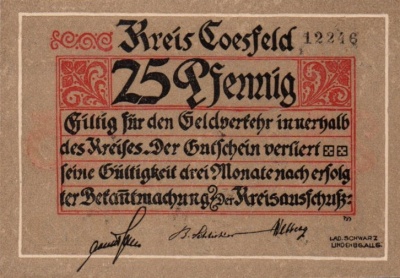 Kreis Coesfeld
12246
25 Pfennig
Giltig für den Geldverkehr innerhalb
des Kreises. Der Gutschein verliert
seine Gültigkeit drei Monate nach erfolg
ter Bekanntmachung. Der Kreisausschuß:
LAD. SCHWARZ
LINDENB.G. ALLG.